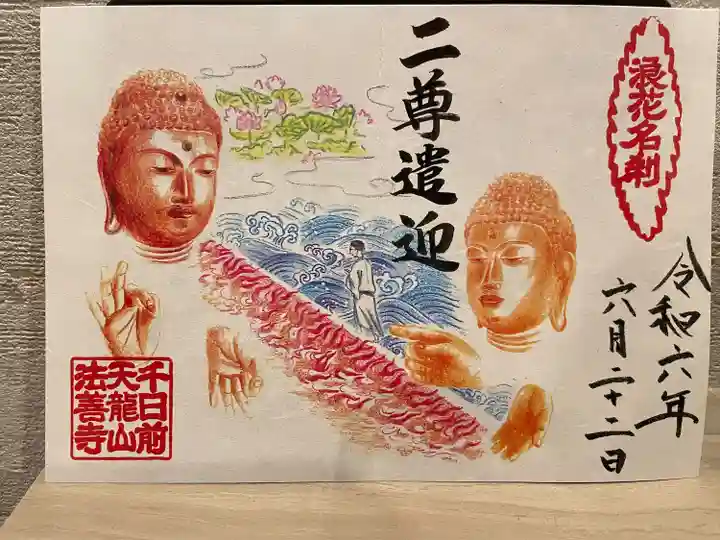 浪花名刹
令和六年
六月二十二日
二尊遣迎
千日前
天龍山
法善寺